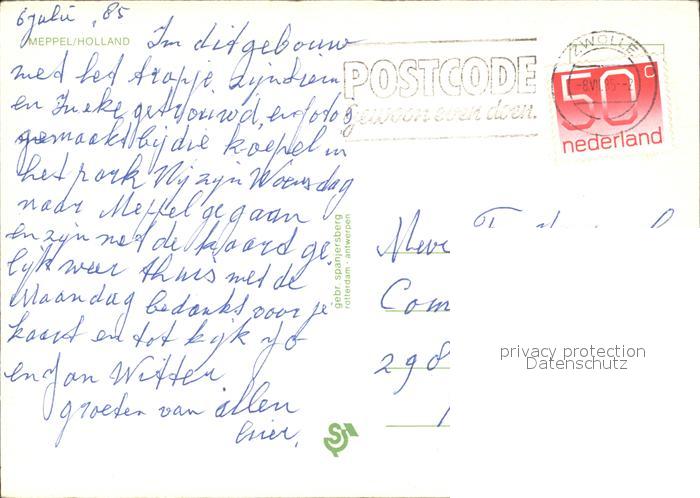 6 julie, 85
MEPPEL/HOLLAND
In dit gebouw
met het trapje zijn
en Ineke getrouwd, en foto's
gemaakt bij die koepel in
het park Wij zijn Woensdag
naar Meppel gegaan
en zijn met de kaard ge
lijk weer thuis met de
Maandag bedankt voor je
kaart en tot kijk Jo
en Jan Witter
groeten van allen
hier.
gebr. spanjersberg
rotterdam - antwerpen
POSTCODE
Gewoon even doen.
ZWOLLE
50 c
nederland
Mevr
Com
298
privacy protection
Datenschutz